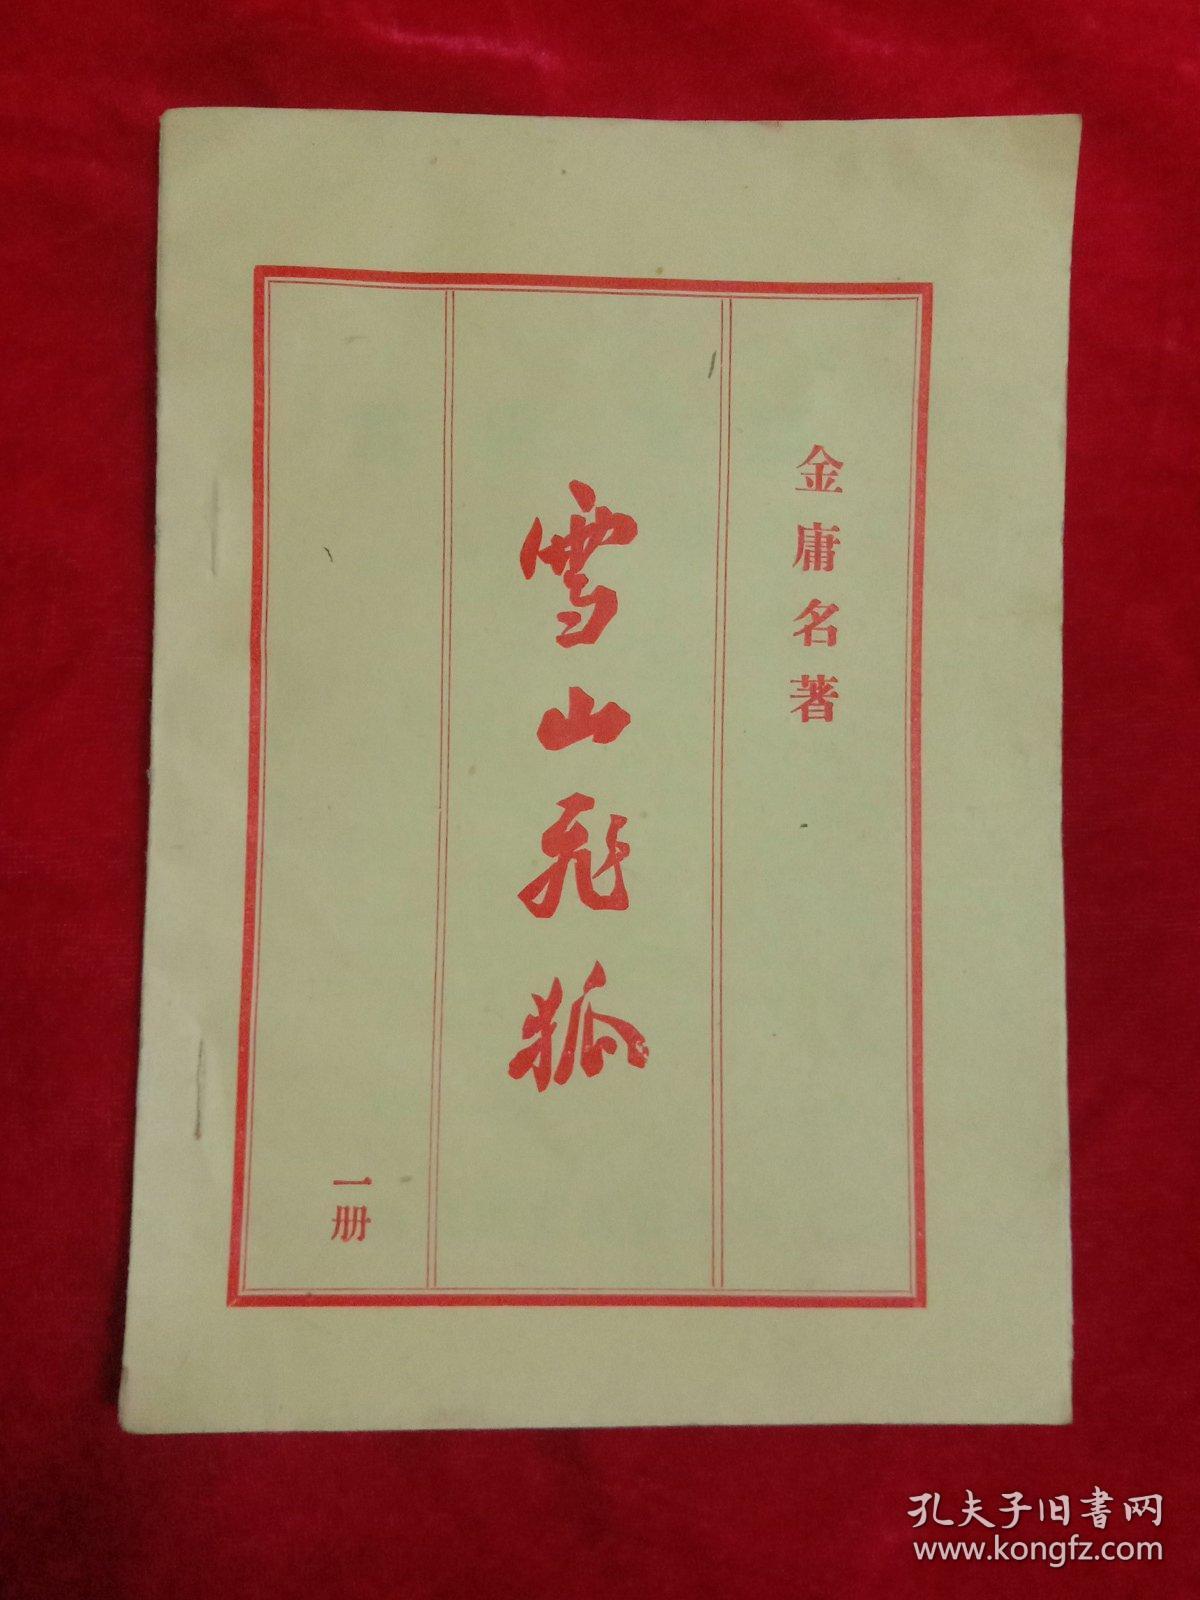 金庸名著
雪山飛狐
一册
孔夫子旧書网
www.kongfz.com